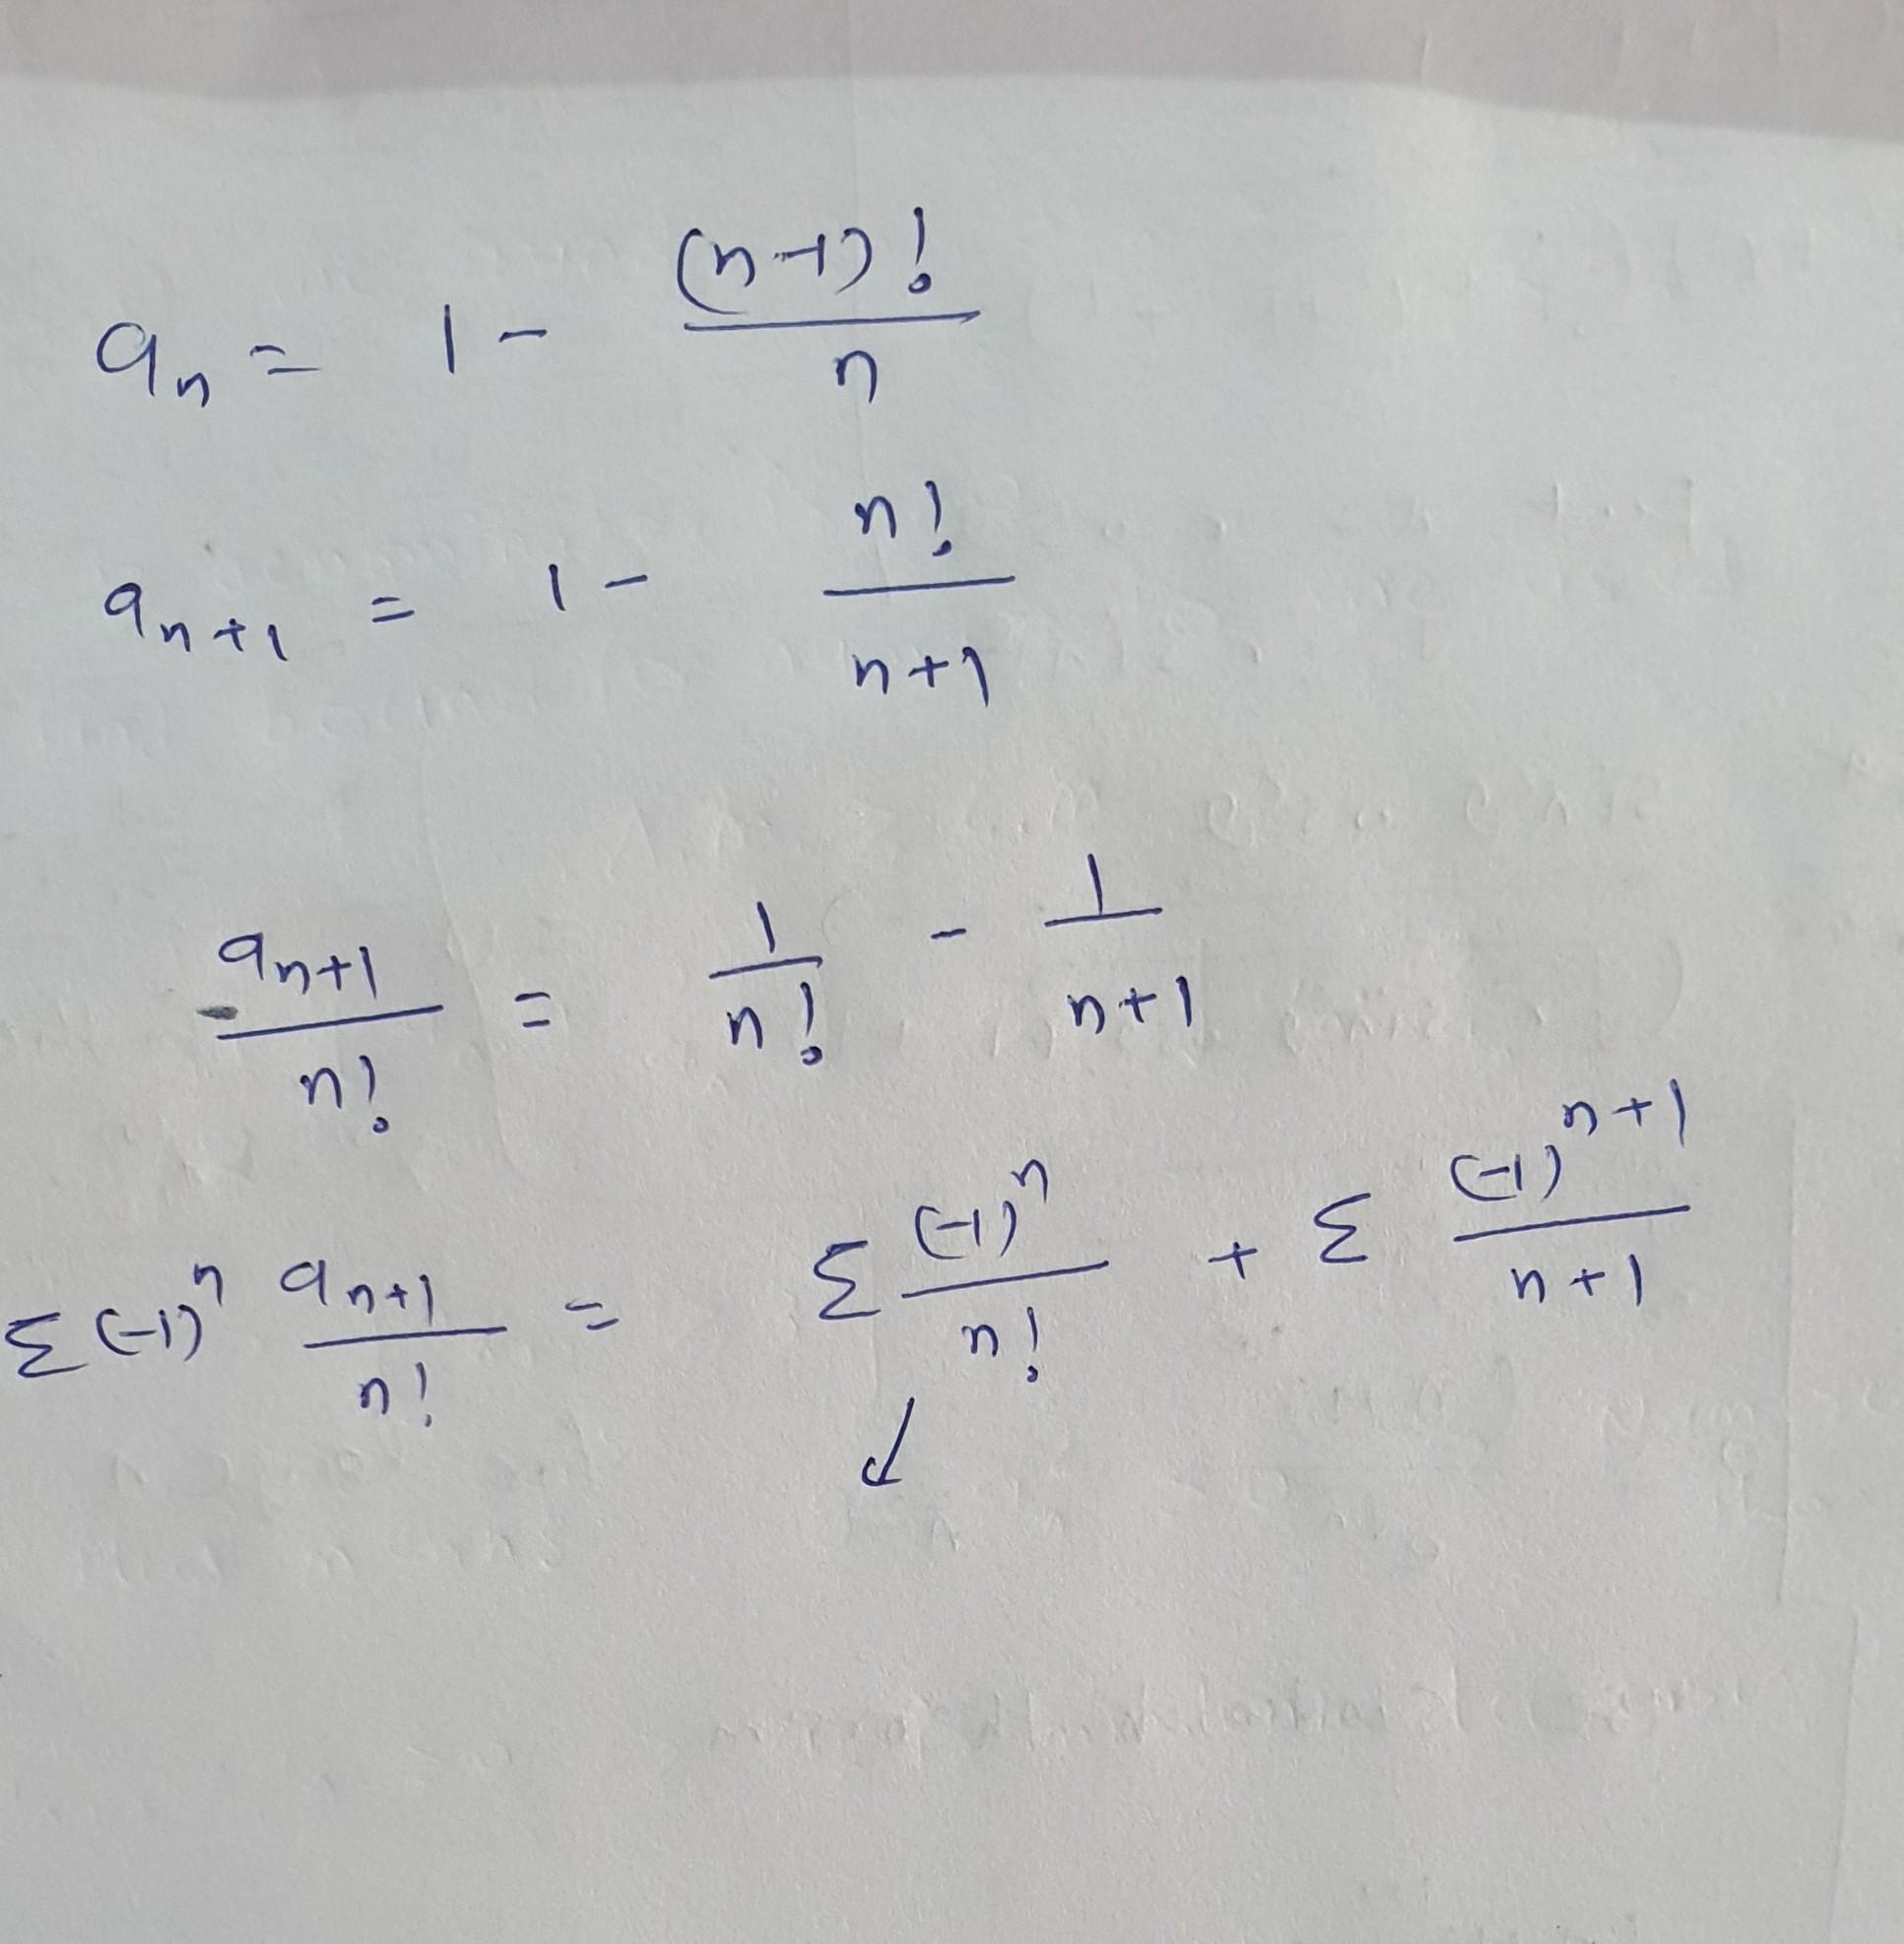 aₙ = 1 - (n-1)! / n
aₙ₊₁ = 1 - n! / n+1
aₙ₊₁ / n! = 1 / n! - 1 / n+1
Σ (-1)ⁿ aₙ₊₁ / n! = Σ (-1)ⁿ / n! + Σ (-1)ⁿ⁺¹ / n+1